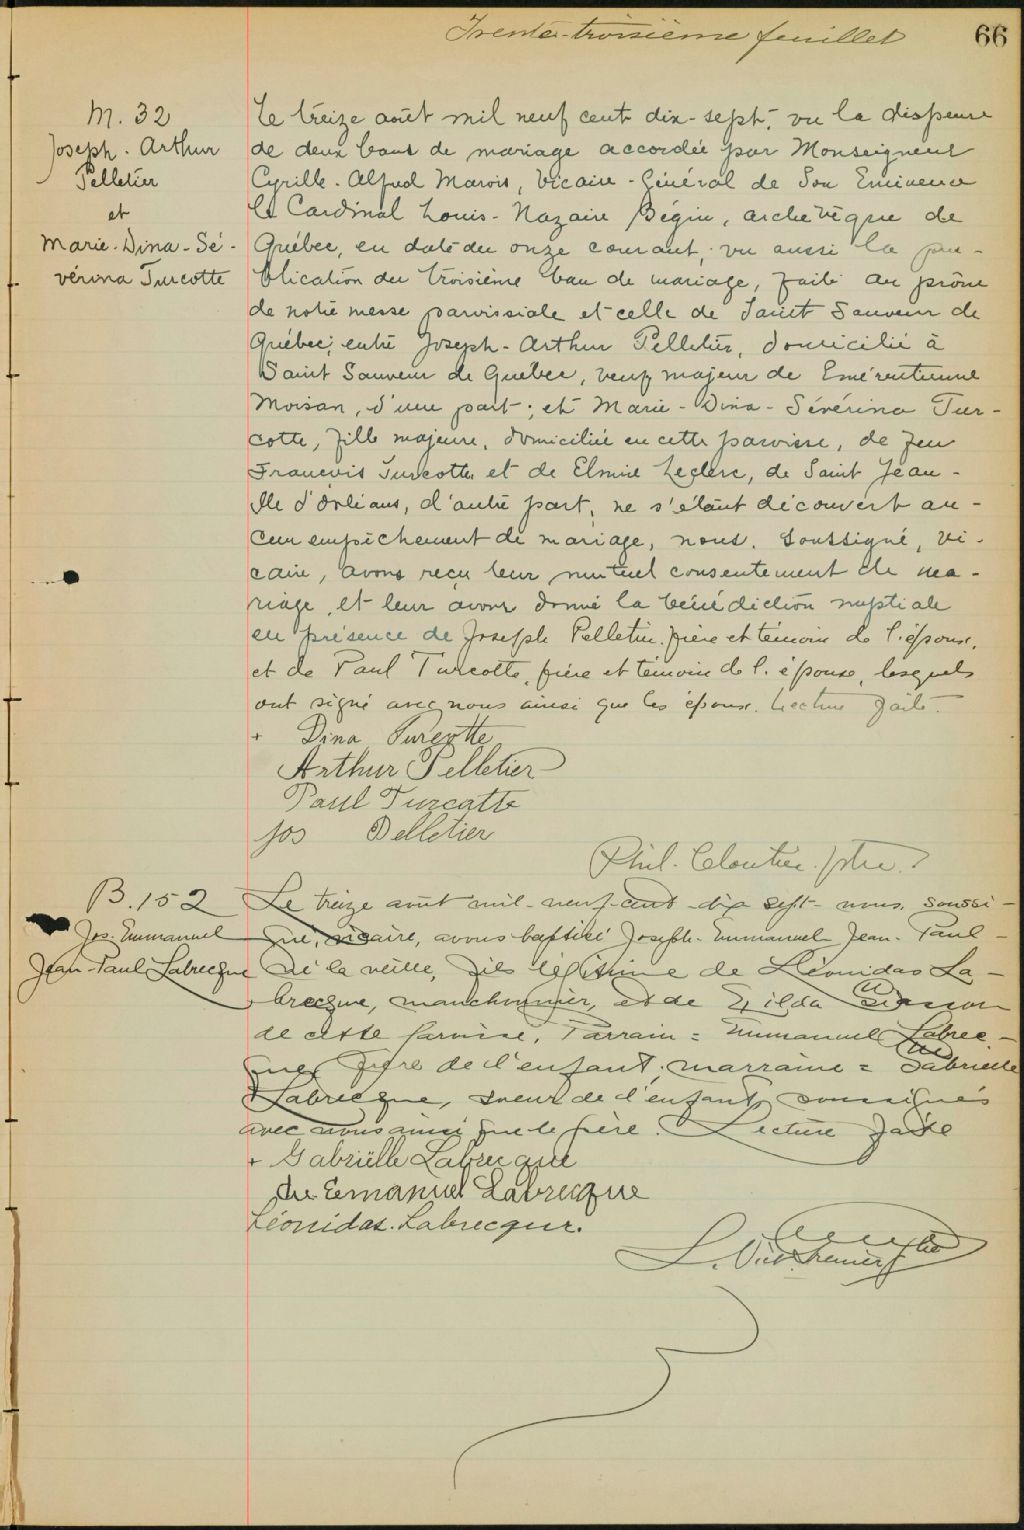 Trente-troisième feuillet
66
M. 32
Joseph-Arthur
Pelletier
et
Marie-Dina-Sé-
vérina Turcotte
Le treize août mil neuf cent dix-sept, vu la dispense
de deux bans de mariage accordée par Monseigneur
Cyrille-Alfred Marois, Vicaire-Général de Son Eminence
le Cardinal Louis-Nazaire Bégin, archevêque de
Québec, en date du onze courant; vu aussi la pu-
blication du troisième ban de mariage, faite au prône
de notre messe paroissiale et celle de Saint Sauveur de
Québec, entre Joseph-Arthur Pelletier, domicilié à
Saint Sauveur de Québec, veuf majeur de Emérentienne
Moisan, d'une part; et Marie-Dina-Sévérina Tur-
cotte, fille majeure, domiciliée en cette paroisse, de feu
François Turcotte et de Elmire Leclerc, de Saint Jean-
Ile d'Orléans, d'autre part, ne s'étant découvert au-
cun empêchement de mariage, nous, soussigné, vi-
caire, avons reçu leur mutuel consentement de ma-
riage, et leur avons donné la bénédiction nuptiale
en présence de Joseph Pelletier, frère et témoin de l'époux,
et de Paul Turcotte, frère et témoin de l'épouse, lesquels
ont signé avec nous ainsi que les époux. Lecture faite.
+ Dina Turcotte
Arthur Pelletier
Paul Turcotte
Jos Pelletier
Phil. Cloutier, ptre.
B. 152
Jos. Emmanuel
Jean-Paul Labrecque
Le treize août mil-neuf-cent-dix sept-nous, soussi-
gné, vicaire, avons baptisé Joseph-Emmanuel Jean-Paul-
né la veille, fils légitime de Léonidas La-
brecque, manchonnier, et de Exilda Siasson
de cette paroisse, Parrain = Emmanuel Labrec-
que, frère de l'enfant; marraine = Gabrielle
Labrecque, soeur de l'enfant, soussignés
avec nous ainsi que le père. Lecture faite
+ Gabrielle Labrecque
Emanuel Labrecque
Léonidas Labrecque.
L. Vict.